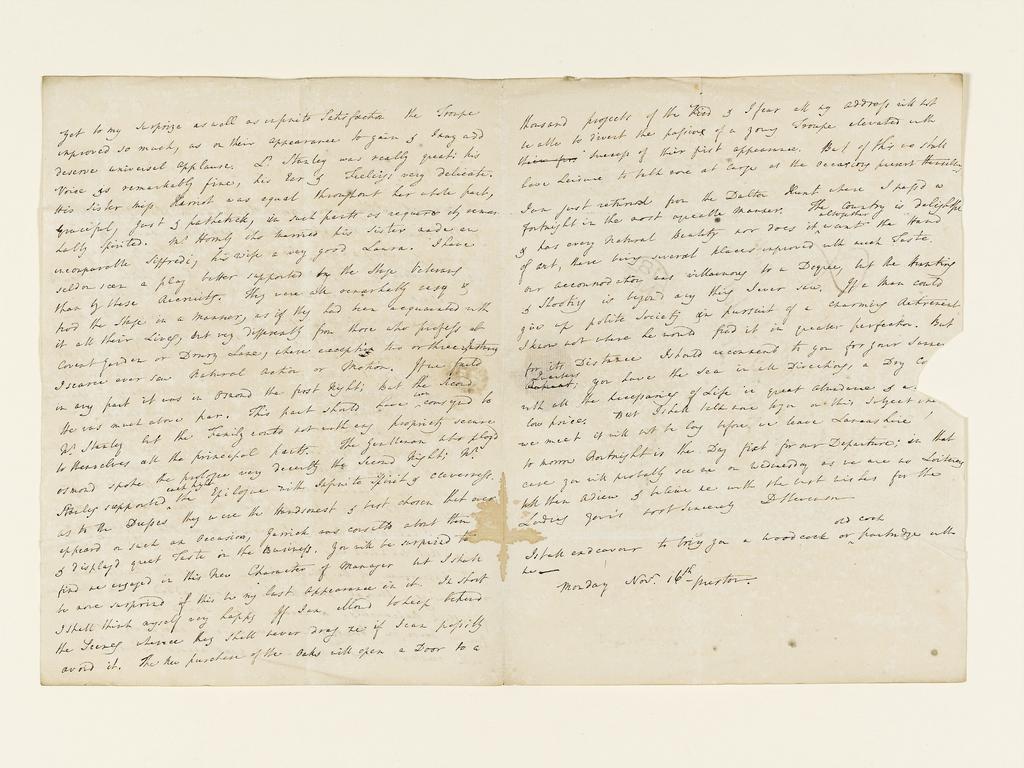 yet to my Surprize as well as infinite Satisfaction the Troupe
improved so much, as on their appearance to gain & I may add
deserve universal applause. Ld Stanley was really great; his
Voice is remarkably fine, his Ear & Feelings very delicate.
His Sister miss Harriot was equal throughout her whole part,
Graceful, just & pathetick, in such parts as required it, &
spirited. Mr Hornby who married his Sister made an
incomparable Siffredi, his Wife a very good Laura. I have
seldom seen a play better supported by the Stage Veterans
than by these Recruits. They were all remarkably easy &
trod the Stage in a manner, as if they had been acquainted with
it all their Lives, but very differently from those who profess at
Covent Garden or Drury Lane, where except in two or three Instances
I scarce ever saw Natural Action or Motion. If we faild
in any part it was in Osmond the first Night; but the Second
He was much above par. This part should have been consigned to
Ld Stanley but the Family could not with any propriety secure
to themselves all the principal parts. The Gentleman who playd
Osmond spoke the prologue very decently the Second Night; Mr
Stanley supported the Epilogue with Infinite Spirit & cleverness.
as to the Dresses they were the handsomest & best chosen that ever
appeard on such an Occasion, Garrick was consulted about them
& displayd great Taste in the Business. You will be surprized to
find me engaged in this New Character of Manager but I shall
be more surprized if this be not my last Appearance in it. In short
I shall think myself very happy If I am allowd to keep behind
the Scenes whence they shall never drag me if I can possibly
avoid it. The New purchase of the Oaks will open a Door to a
thousand projects of the Kind & I fear all my address will not
be able to divert the passion of a young Troupe elevated with
the success of their first appearance. But of this we shall
have Leisure to talk more at large as the occasions present themselves
I am just returned from the Dalton Hunt where I pass'd a
fortnight in the most agreable manner. The Country is altogether delightful
& has every Natural Beauty nor does it want the Hand
of art, there being several places improved with much Taste.
our accommodation was villainous to a Degree, but the Hunting
& Shooting is beyond any thing I ever saw. If a man could
give up polite Society in pursuit of a charming Retirement
I know not where he would find it in greater perfection. But
for its Distance I should recommend to you for your Summer
you have the Sea in all Directions, a Dry Co
with all the Necessaries of Life in great abundance & a
low prices. But I shall talk more to you on this Subject when
we meet it will not be long before we leave Lancashire
to morrow Fortnight is the Day fixt for our Departure; in that
case you will probably see me on Wednesday as we are no Loiterers
till then adieu & believe me with the best wishes for the
Ladies yours most sincerely D Stevenson
I shall endeavour to bring you a woodcock or old cock partridge with
me —
Monday Novr. 16th preston.